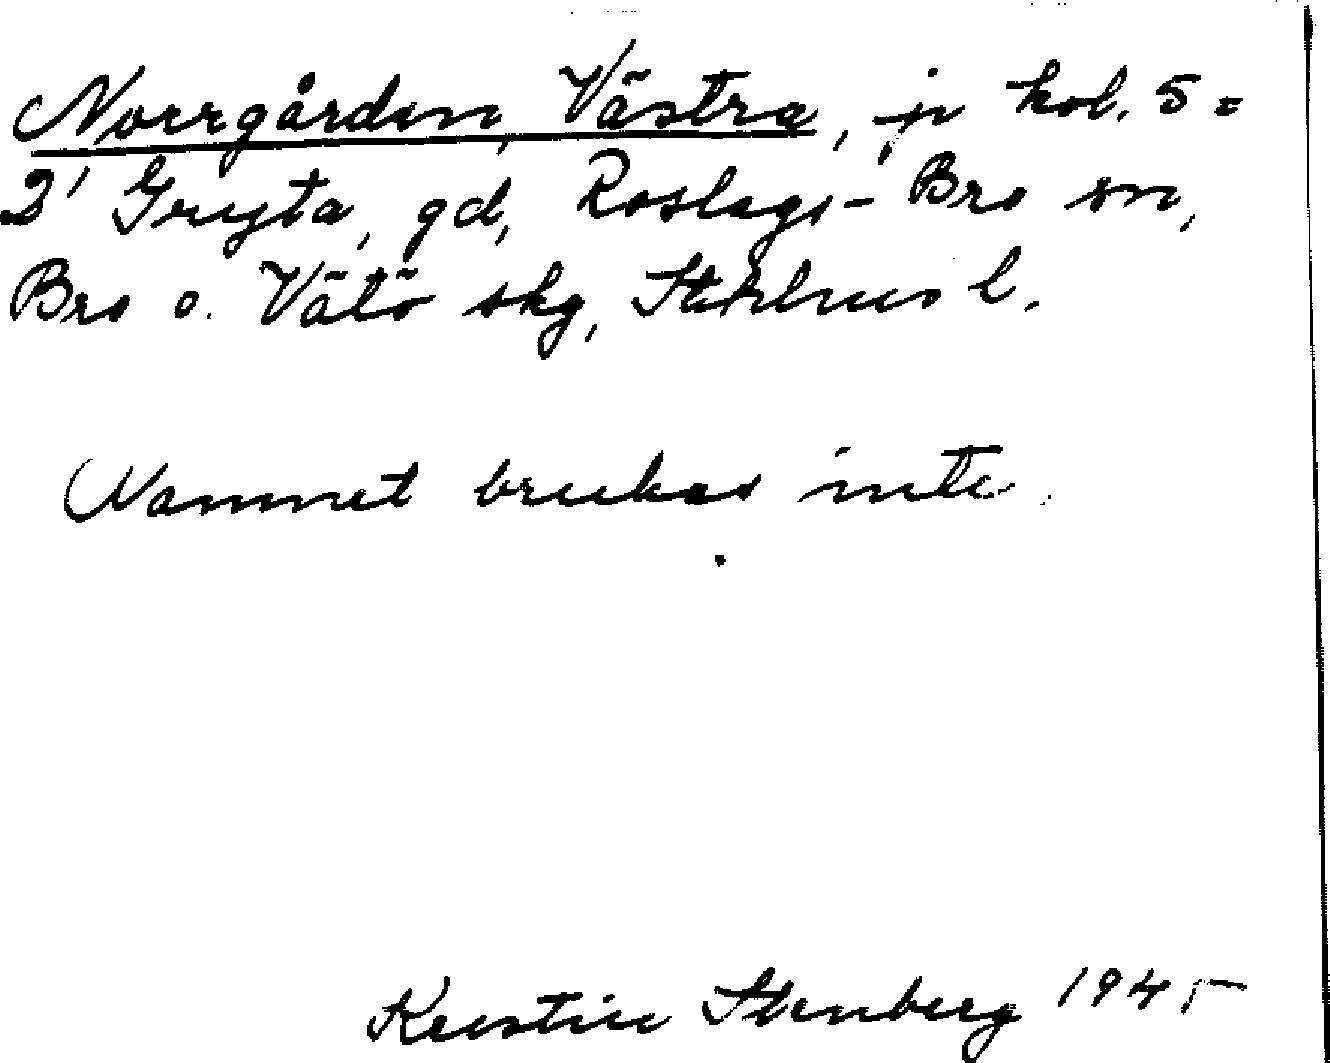 Norrgården, Västra, jr kol. 5 =
2' Gryta, gd, Roslags-Bro sn,
Bro o. Vätö skg, Sthlms l.
Namnet brukas inte.
Kerstin Stenberg 1945